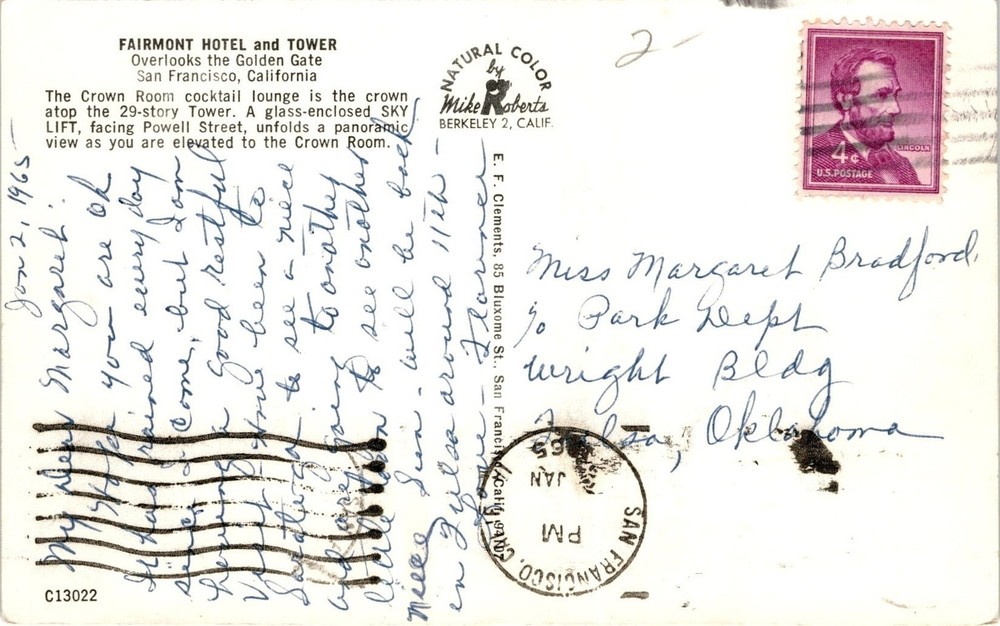 FAIRMONT HOTEL and TOWER
Overlooks the Golden Gate
San Francisco, California
The Crown Room cocktail lounge is the crown
atop the 29-story Tower. A glass-enclosed SKY
LIFT, facing Powell Street, unfolds a panoramic
view as you are elevated to the Crown Room.
NATURAL COLOR
by
Mike Roberts
BERKELEY 2, CALIF.
2-
LINCOLN
4¢
U.S. POSTAGE
Jan 2, 1965
My dear Margaret:
Hope you are OK
It has rained every day
since I came, but I am
having a good restful
Visit. Have been to
Saratoga to see a niece
and am going to another
little town to see another
niece Sun - will be back
in Tulsa around 11th -
Love - Florence
E. F. Clements, 85 Bluxome St., San Francisco, Calif. 94107
Miss Margaret Bradford,
c/o Park Dept
Wright Bldg
Tulsa, Oklahoma
SAN FRANCISCO, CALIF.
PM
JAN
1965
C13022